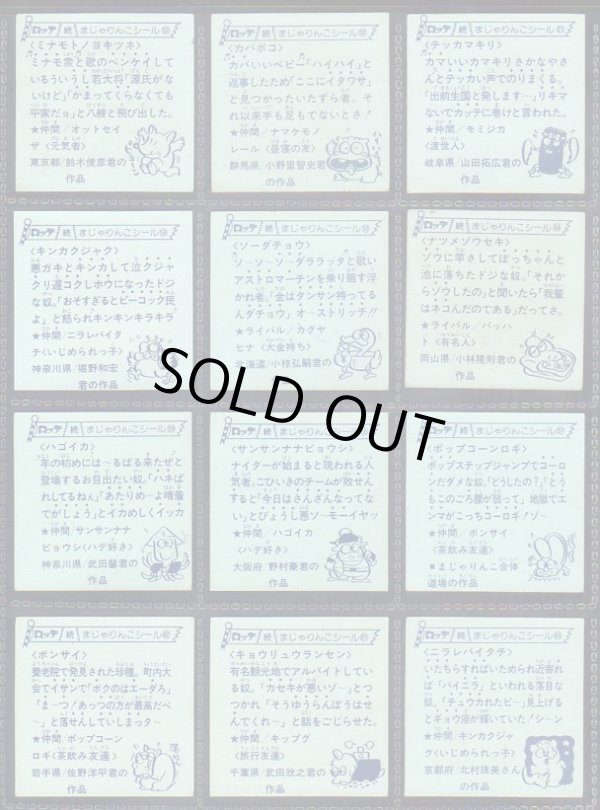 ロッテ 続 まじゃりんこシール
〈ミナモトノヨキツネ〉
ミナモ衆と歌のベンケイして
いるういうし若大将「源氏がな
いけど」「かまってくらなくても
平家だョ」と八艘と飛び出した。
★仲間／オットセイ
ザ〈元気者〉
東京都／鈴木俊彦君の
作品
ロッテ 続 まじゃりんこシール
〈カバボコ〉
カバいいベビー「ハイハイ」と
返事したため「ここにイタワサ」
と見つかったいたずら者。そ
れ以来手も足もでないとさ！
★仲間／ナマケモノ
レール〈昼寝の友〉
群馬県／小野里智史君
の作品
ロッテ 続 まじゃりんこシール
〈テッカマキリ〉
カマいいカマキリさかなやさ
んとテッカい声でのりまくる。
「出前生国と発します…」リキマ
ないでカッテに巻けと言われた。
★仲間／モミジカ
〈渡世人〉
岐阜県／山田拓広君の
作品
ロッテ 続 まじゃりんこシール
〈キンカクジャク〉
悪ガキとキンカして泣クジャ
クリ遅コクしホウになったドジ
な奴。「おそすぎるとピーコック民
よ」と怒られキンキンキラキラ
★仲間／ニラレバイタ
チ〈いじめられっ子〉
神奈川県／堀野和宏
君の作品
ロッテ 続 まじゃりんこシール
〈ソーダチョウ〉
ソ－ソ－ソ－ダララッタと歌い
アストロマーチンを乗り越す浮
かれ者。「金はタンサン持ってる
んダチョウ」オーストリッチ!!
★ライバル／カグヤ
ヒナ〈大金持ち〉
北海道／小椋弘嗣君の
作品
ロッテ 続 まじゃりんこシール
〈ナツメゾウセキ〉
ゾウに竿さしてぼっちゃんと
池に落ちたドジな奴。「それか
らゾウしたの」と聞いたら「我輩
はネコんだのである」だってさ。
★ライバル／バッハ
ト〈有名人〉
岡山県／小林隆則君の
作品
SOLD OUT
ロッテ 続 まじゃりんこシール
〈ハゴイカ〉
年の初めには～るばる来たぜと
登場するお目出たい奴。「ハネば
れしてるねぇ」「あたりめ～よ晴着
でがしょう」とイカめしくイッカ
★仲間／サンサンナナ
ビョウシ〈ハデ好き〉
神奈川県／武田馨君の
作品
ロッテ 続 まじゃりんこシール
〈サンサンナナビョウシ〉
ナイターが始まると現われる人
気者。ごひいきのチームが敗せん
すると「今日はさんざんなってな
い」とびょうし悪ソ－モーイヤッ
★仲間／ハゴイカ
〈ハデ好き〉
大阪府 野村豪君の
作品
ロッテ 続 まじゃりんこシール
〈ポップコーンロギ〉
ポップステップジャンプでコーロ
ンだダメな奴。「どうしたの？」「と
うもこのごろ腰が弱って」地獄でエ
ンマがこっちコーロギ！ゾ～
★仲間／ボンサイ
〈茶飲み友達〉
■まじゃりんこ合体
道場の作品
ロッテ 続 まじゃりんこシール
〈ボンサイ〉
養老院で発見された珍種。町内大
会でイサンで「ボクのはエーダろ」
「ま～つ！あっつの方が最高だべ
～」と落せんしていしまッタ～
★仲間／ポップコーン
ロギ〈茶飲み友達〉
岩手県／佐野洋平君の
作品
ロッテ 続 まじゃりんこシール
〈キョウリュウランセン〉
有名観光地でアルバイトしてい
る奴。「カセキが悪いゾ～」とつ
つかれ「そうゆうらんぼうはせ
んでくれ～」と話をごじらせた。
★仲間／キップグ
〈旅行友達〉
千葉県／武田欣之君の
作品
ロッテ 続 まじゃりんこシール
〈ニラレバイタチ〉
いたちらすればいためられ近寄れ
ば「バイニラ」といわれる落目な
奴。「チュウカれたビ～」見上げる
とギョウ座が輝いていた！シ～ン
★仲間／キンカクジャ
ク〈いじめられっ子〉
京都府／北村珠美さん
の作品